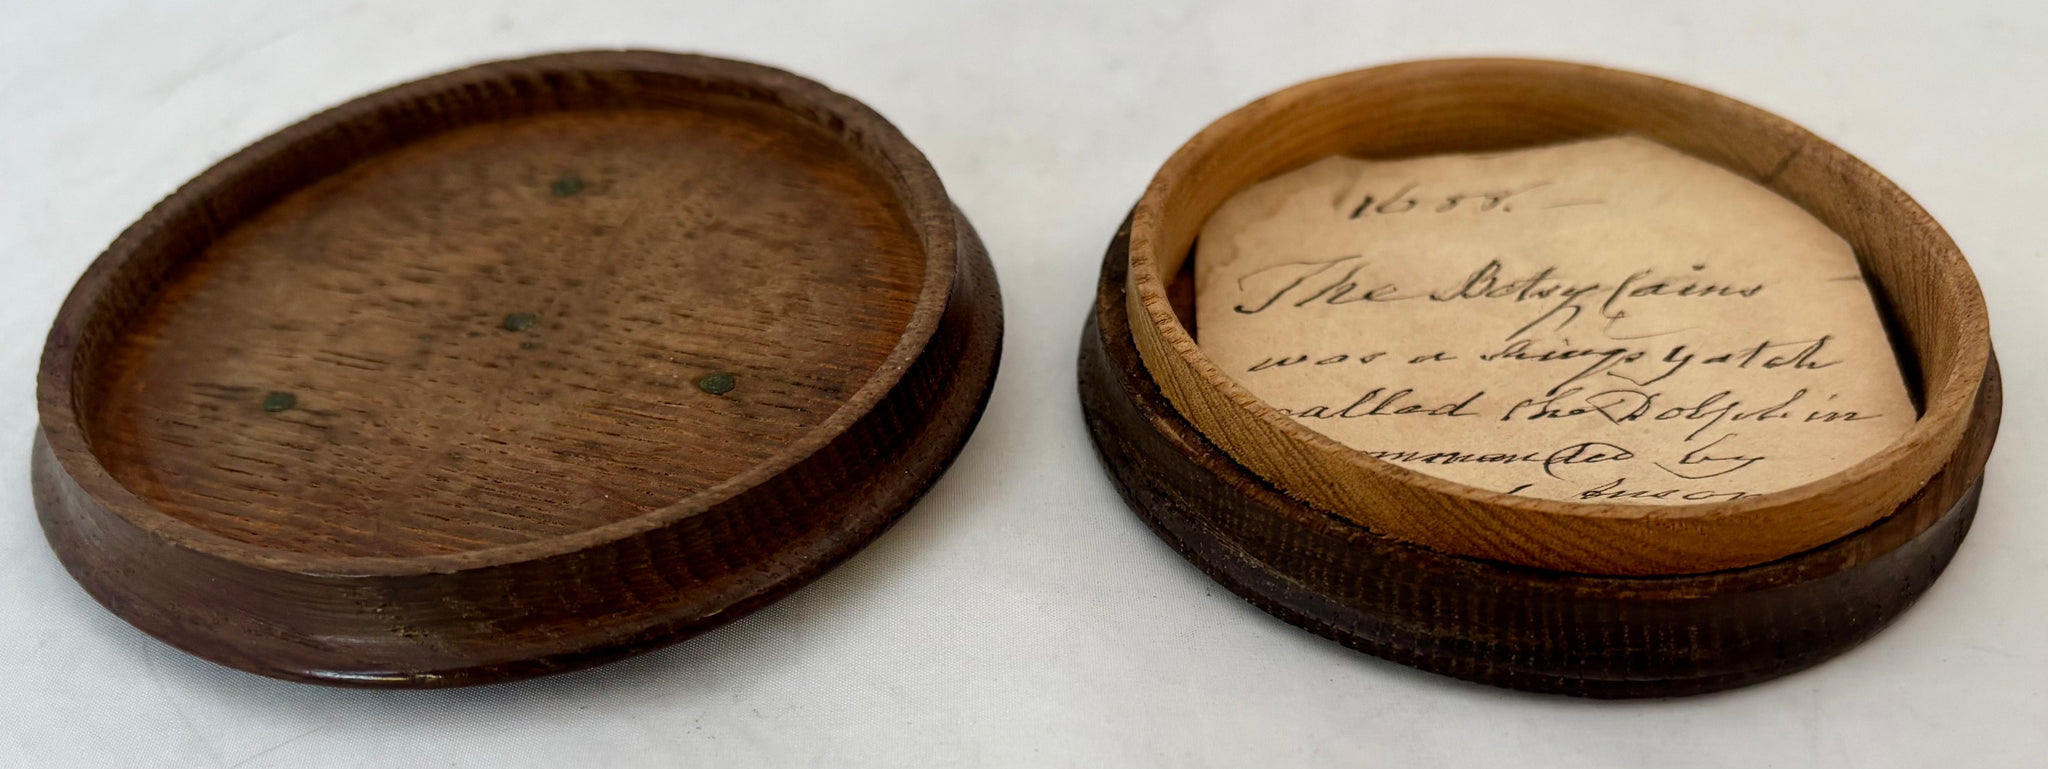 1688. —
The Betsy Cains
was a Kings yatch
called the Dolphin
ommanded by
Anson